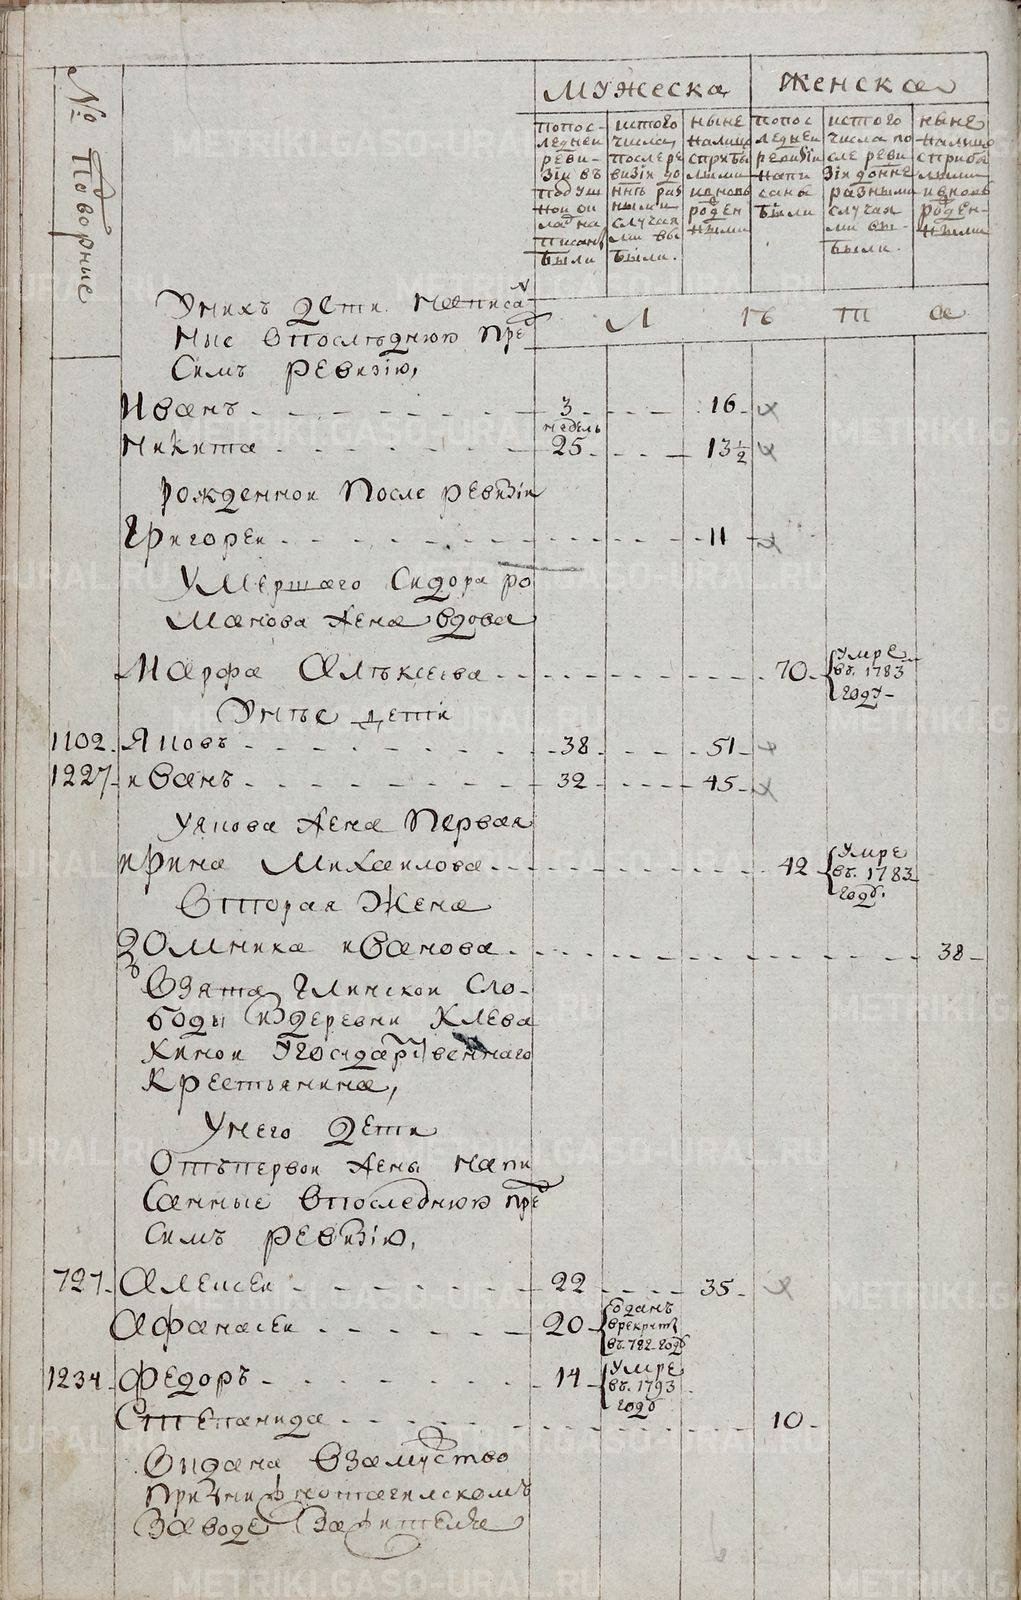 № Подворные
мужеска
женска
попос-
ледней
реви-
зіи въ
подуш
ной ок
лад на
писаны
были
истого
числа,
послере
визіи до
ннѣ раз
ными
случая
ми вы
были.
ныне
налицо
сприбы
лыми
и вновь
рожден
ными
попос
ледней
ревизіи
напи
саны
были
истого
числа по
сле реви
зіи доне
разными
случая
ми вы-
были.
ныне
налицо
сприбы
лыми
и вновь
рожден-
ными
Л ѣ т а
Унихъ дети написа
ные впоследнюю пре
симъ ревизію,
Иванъ 3 16
Никита недель 25 13½
рожденной после ревизіи
Григорей 11
умершаго Сидора ро
манова жена вдова
Марфа Алѣксеева 70 умре въ 1783 году
Унѣе дети
1102 Яковъ 38 51
1227 иванъ 32 45
Уякова жена первая
ирина Михаилова 42 умре въ 1783 годѣ.
Вторая жена
домника иванова 38
взята Глинской Сло-
боды издеревни Клева
киной Угосударственнаго
крестьянина,
Унего дети
Отъпервои жены напи
санные впоследнюю пре
симъ ревизію,
727 Алексей 22 35
Афанасеи 20 отданъ врекруты въ 782 годѣ
1234 Федоръ 14 умре въ 1793 годѣ
Степанида 10
выдана взамуство
принижнотагилскомъ
заводе зажителя
METRIKI.GASO-URAL.RU